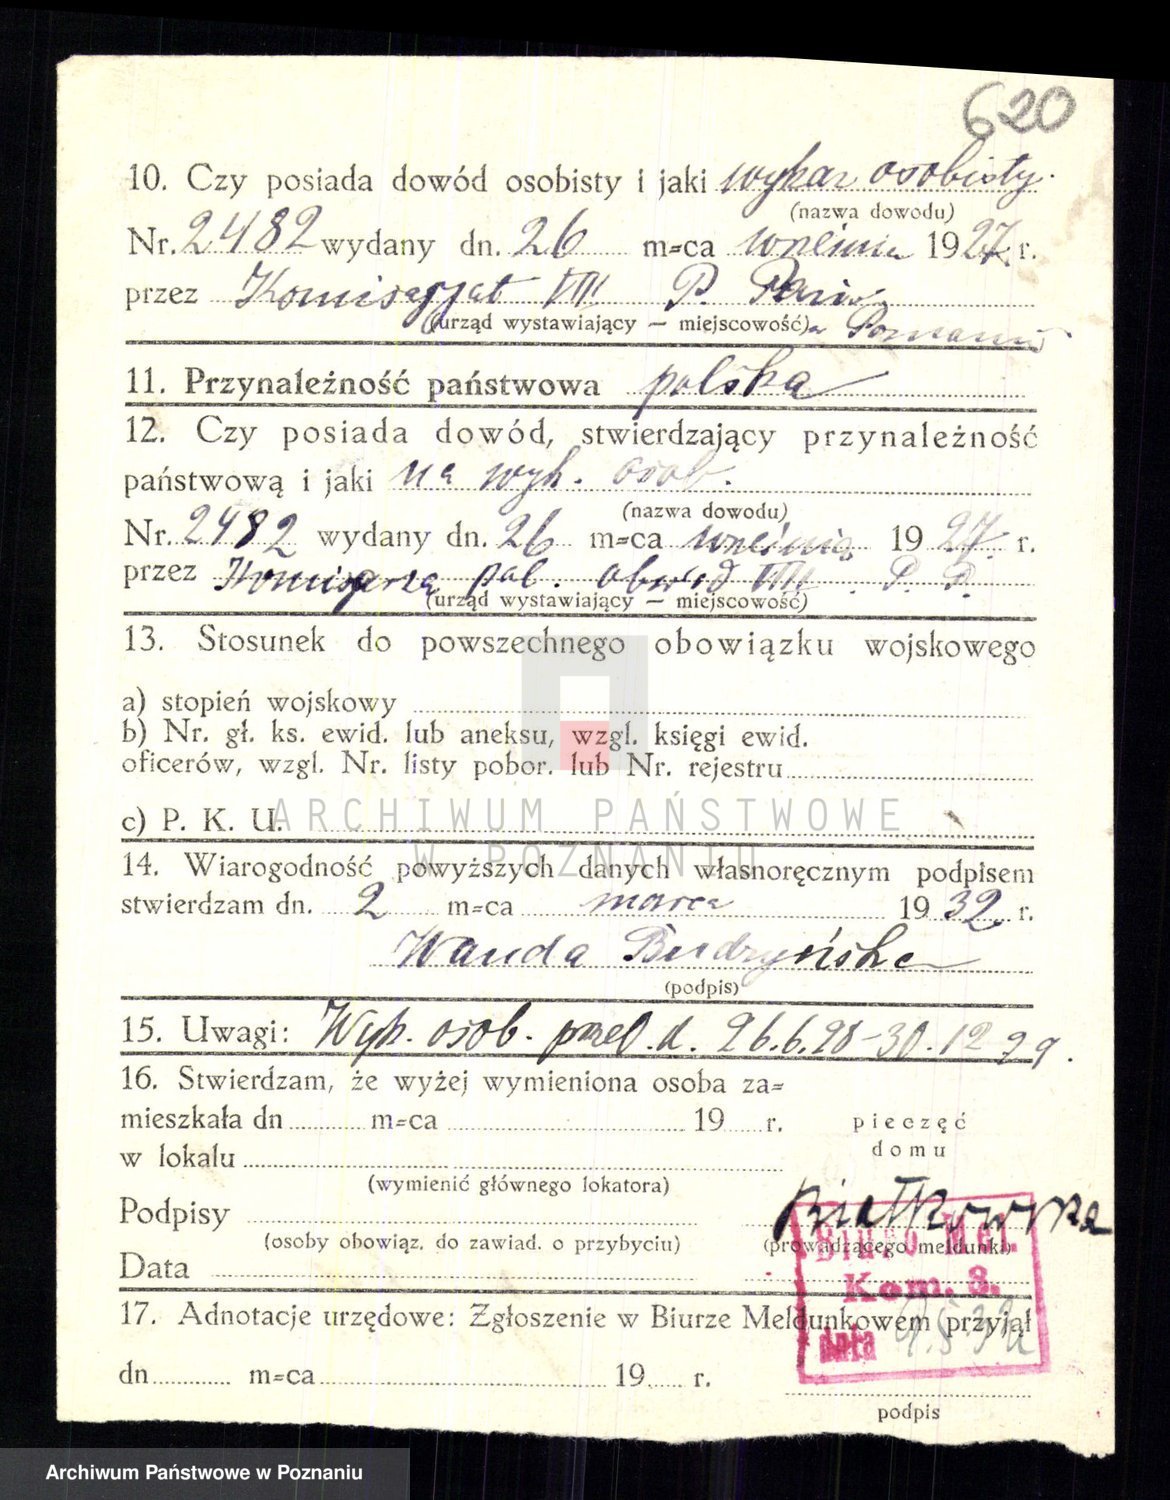 620
10. Czy posiada dowód osobisty i jaki wykaz osobisty.
(nazwa dowodu)
Nr. 2482 wydany dn. 26 m=ca września 1927 r.
przez Komisarjat VIII P. P.
(urząd wystawiający — miejscowość) Poznaniu
11. Przynależność państwowa polska
12. Czy posiada dowód, stwierdzający przynależność
państwową i jaki na wyk. osob.
(nazwa dowodu)
Nr. 2482 wydany dn. 26 m=ca września 1927. r.
przez Komisarza pol. obwód VIII. P. P.
(urząd wystawiający — miejscowość)
13. Stosunek do powszechnego obowiązku wojskowego
a) stopień wojskowy
b) Nr. gł. ks. ewid. lub aneksu, wzgl. księgi ewid.
oficerów, wzgl. Nr. listy pobor. lub Nr. rejestru
c) P. K. U.
ARCHIWUM PAŃSTWOWE
W POZNANIU
14. Wiarogodność powyższych danych własnoręcznym podpisem
stwierdzam dn. 2 m=ca marca 1932. r.
Wanda Budzyńska
(podpis)
15. Uwagi: Wyk. osob. przedł. d. 26.6.28-30.12 29.
16. Stwierdzam, że wyżej wymieniona osoba za=
mieszkała dn m=ca 19 r.
pieczęć
domu
w lokalu
(wymienić głównego lokatora)
Podpisy Białkowska
(osoby obowiąz. do zawiad. o przybyciu) (prowadzącego meldunki)
Biuro Mel.
Kom. 3.
dnia
Data
17. Adnotacje urzędowe: Zgłoszenie w Biurze Meldunkowem przyjął
dn m=ca 19 r.
podpis
Archiwum Państwowe w Poznaniu